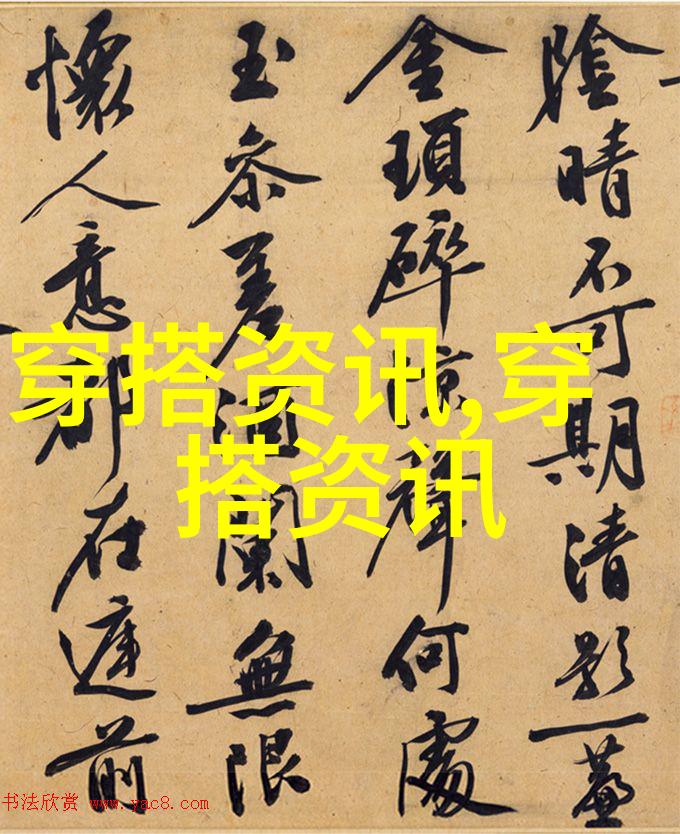 陰晴不可期清影一簾
金瑣碎涼聲何處
玉參差酒闌無限
懷人意都在庭前
穿搭资讯,穿
搭资讯
书法欣赏 www.yac8.com